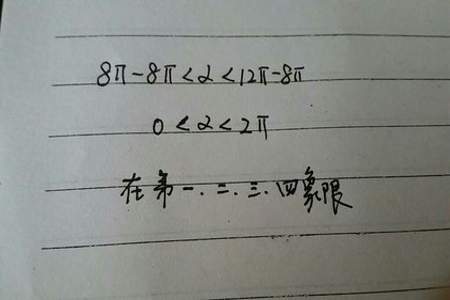 8π-8π<α<12π-8π
0<α<2π
在第一.二.三.四象限